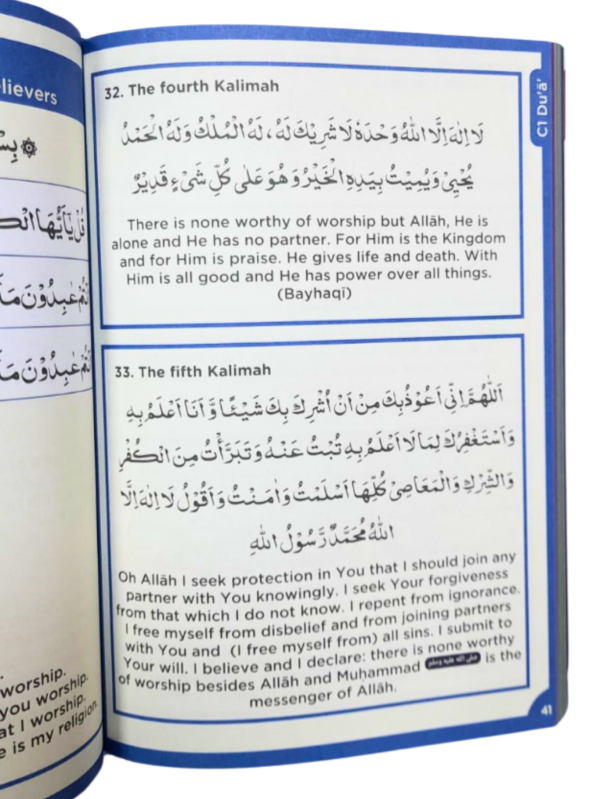 lievers
قُلْ يٰٓاَيُّهَا
عٰبِدُوْنَ
عٰبِدُوْنَ
worship.
you worship.
at I worship.
e is my religion.
C1 Du'ā'
32. The fourth Kalimah
لَا اِلٰهَ اِلَّا اللّٰهُ وَحْدَهٗ لَا شَرِيْكَ لَهٗ، لَهُ الْمُلْكُ وَلَهُ الْحَمْدُ
يُحْيِيْ وَيُمِيْتُ بِيَدِهِ الْخَيْرُ وَهُوَ عَلٰى كُلِّ شَىْءٍ قَدِيْرٌ
There is none worthy of worship but Allāh, He is
alone and He has no partner. For Him is the Kingdom
and for Him is praise. He gives life and death. With
Him is all good and He has power over all things.
(Bayhaqī)
33. The fifth Kalimah
اَللّٰهُمَّ اِنِّىْ اَعُوْذُبِكَ مِنْ اَنْ اُشْرِكَ بِكَ شَيْئًا وَّ اَنَا اَعْلَمُ بِهٖ
وَاَسْتَغْفِرُكَ لِمَا لَا اَعْلَمُ بِهٖ تُبْتُ عَنْهُ وَتَبَرَّأْتُ مِنَ الْكُفْرِ
وَالشِّرْكِ وَالْمَعَاصِىْ كُلِّهَا اَسْلَمْتُ وَاٰمَنْتُ وَاَقُوْلُ لَا اِلٰهَ اِلَّا
اللّٰهُ مُحَمَّدٌ رَّسُوْلُ اللّٰهِ
Oh Allāh I seek protection in You that I should join any
partner with You knowingly. I seek Your forgiveness
from that which I do not know. I repent from ignorance.
I free myself from disbelief and from joining partners
with You and (I free myself from) all sins. I submit to
Your will. I believe and I declare: there is none worthy
of worship besides Allāh and Muḥammad صلى الله عليه وسلم is the
messenger of Allāh.
41